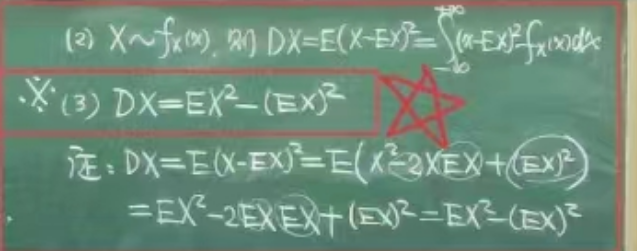 (2) X~fₓ(x), 则 DX=E(X-EX)²=∫_{-∞}^{+∞}(x-EX)²fₓ(x)dx
※ (3) DX=EX²-(EX)²
证: DX=E(X-EX)²=E(X²-2XEX+(EX)²)
=EX²-2EXEX+(EX)²=EX²-(EX)²